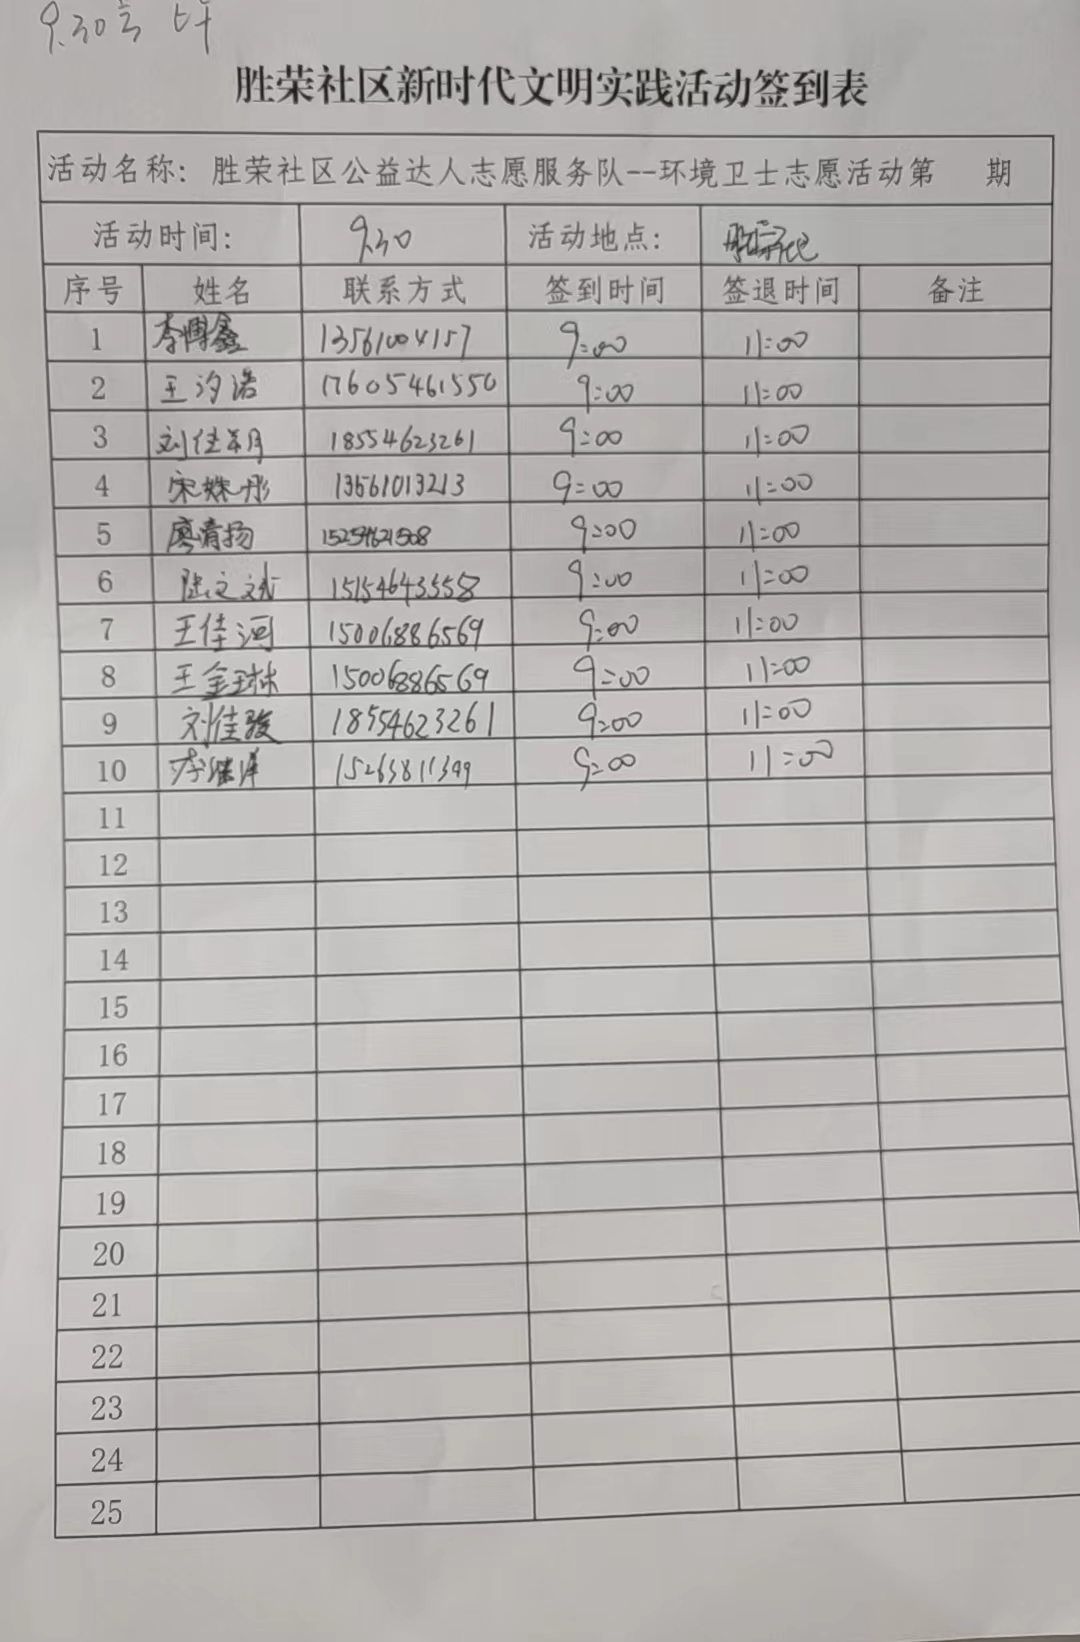 9.30号 上午
胜荣社区新时代文明实践活动签到表
活动名称：胜荣社区公益达人志愿服务队--环境卫士志愿活动第 期
活动时间： 9.30 活动地点：
序号 姓名 联系方式 签到时间 签退时间 备注
1 李博鑫 13561004157 9:00 11:00
2 王汐浩 17605461550 9:00 11:00
3 刘佳明 18554623261 9:00 11:00
4 宋姝彤 13561013213 9:00 11:00
5 廖清扬 15254621508 9:00 11:00
6 陆文斌 15154643558 9:00 11:00
7 王佳河 15006886569 9:00 11:00
8 王金琳 15006886569 9:00 11:00
9 刘佳骏 18554623261 9:00 11:00
10 李继洋 15263811399 9:00 11:00
11
12
13
14
15
16
17
18
19
20
21
22
23
24
25